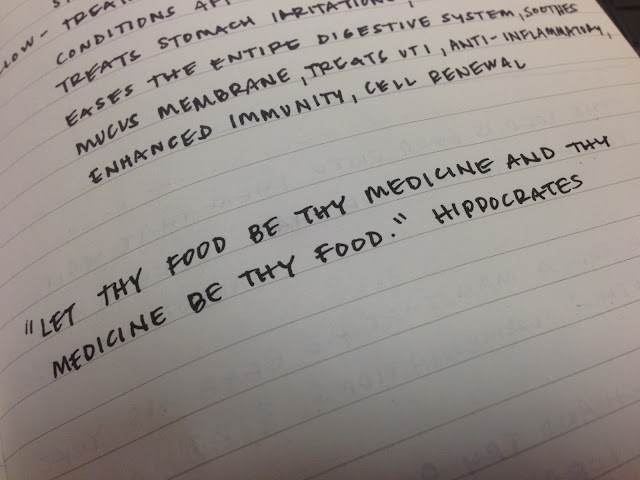 LOW - TREAT
CONDITIONS
TREATS STOMACH IRRITATIONS,
EASES THE ENTIRE DIGESTIVE SYSTEM, SOOTHES
MUCUS MEMBRANE, TREATS UTI, ANTI-INFLAMMATORY,
ENHANCED IMMUNITY, CELL RENEWAL
"LET THY FOOD BE THY MEDICINE AND THY
MEDICINE BE THY FOOD." HIPPOCRATES